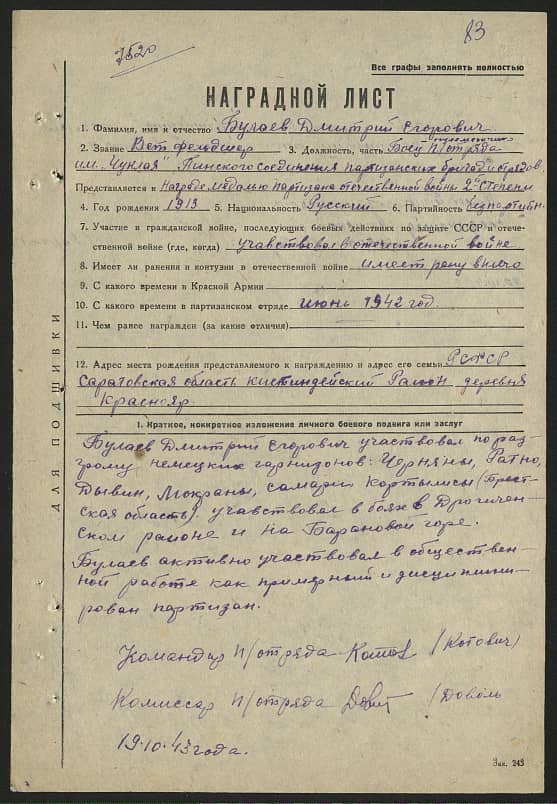 83
7520
Все графы заполнять полностью
НАГРАДНОЙ ЛИСТ
1. Фамилия, имя и отчество Булаев Дмитрий Егорович
2. Звание Вет фельдшер 3. Должность, часть Боец п/отряда
им. "Чуклая" Пинского соединения партизанских бригад и отрядов
Представляется к Награде медалью партизана отечественной войны 2й степени
4. Год рождения 1913 5. Национальность Русский 6. Партийность безпартийн.
7. Участие в гражданской войне, последующих боевых действиях по защите СССР и отече-
ственной войне (где, когда) учавствовал в отечественной войне
8. Имеет ли ранения и контузии в отечественной войне имеет рану
9. С какого времени в Красной Армии
10. С какого времени в партизанском отряде июнь 1942 год.
11. Чем ранее награжден (за какие отличия)
12. Адрес места рождения представляемого к награждению и адрес его семьи РСФСР
Саратовская область кистиндейский Район деревня
Краснояр.
I. Краткое, конкретное изложение личного боевого подвига или заслуг
Булаев Дмитрий Егорович участвовал по раз-
грому немецких гарнизонов: Черняны, Ратно,
Дывин, Мокраны, самари Кортылисы (Брест-
ская область). учавствовал в боях в Дрогичен-
ском районе и на Барановой горе.
Булаев активно участвовал в обществен-
ной работе как примерный и дисциплини-
рован партизан.
Командир п/отряда (Котович)
Комиссар п/отряда (Доволь
19.10.43 года.
Зак. 243
ДЛЯ ПОДШИВКИ